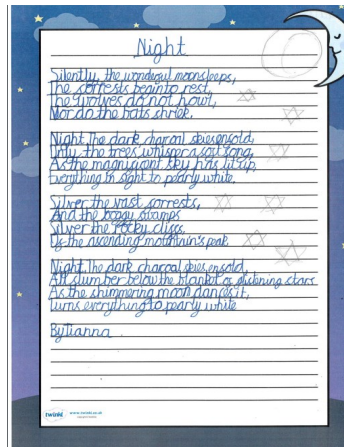 Night
Silently, the wonderful moon sleeps,
The forrests begin to rest,
The wolves do not howl,
Nor do the bats shriek.
Night. The dark charcoal skies enfold,
Only the trees whisper a soft song,
As the magnificant sky has lit up,
Everything in sight to pearly white.
Silver the vast forrests,
And the boggy swamps
Silver the rocky cliffs,
Of the ascending mountain's peak.
Night. The dark charcoal skies enfold,
All slumber below the blanket of glistening stars
As the shimmering moon dances it,
Turns everything to pearly white
By Tianna
twinkl www.twinkl.co.uk